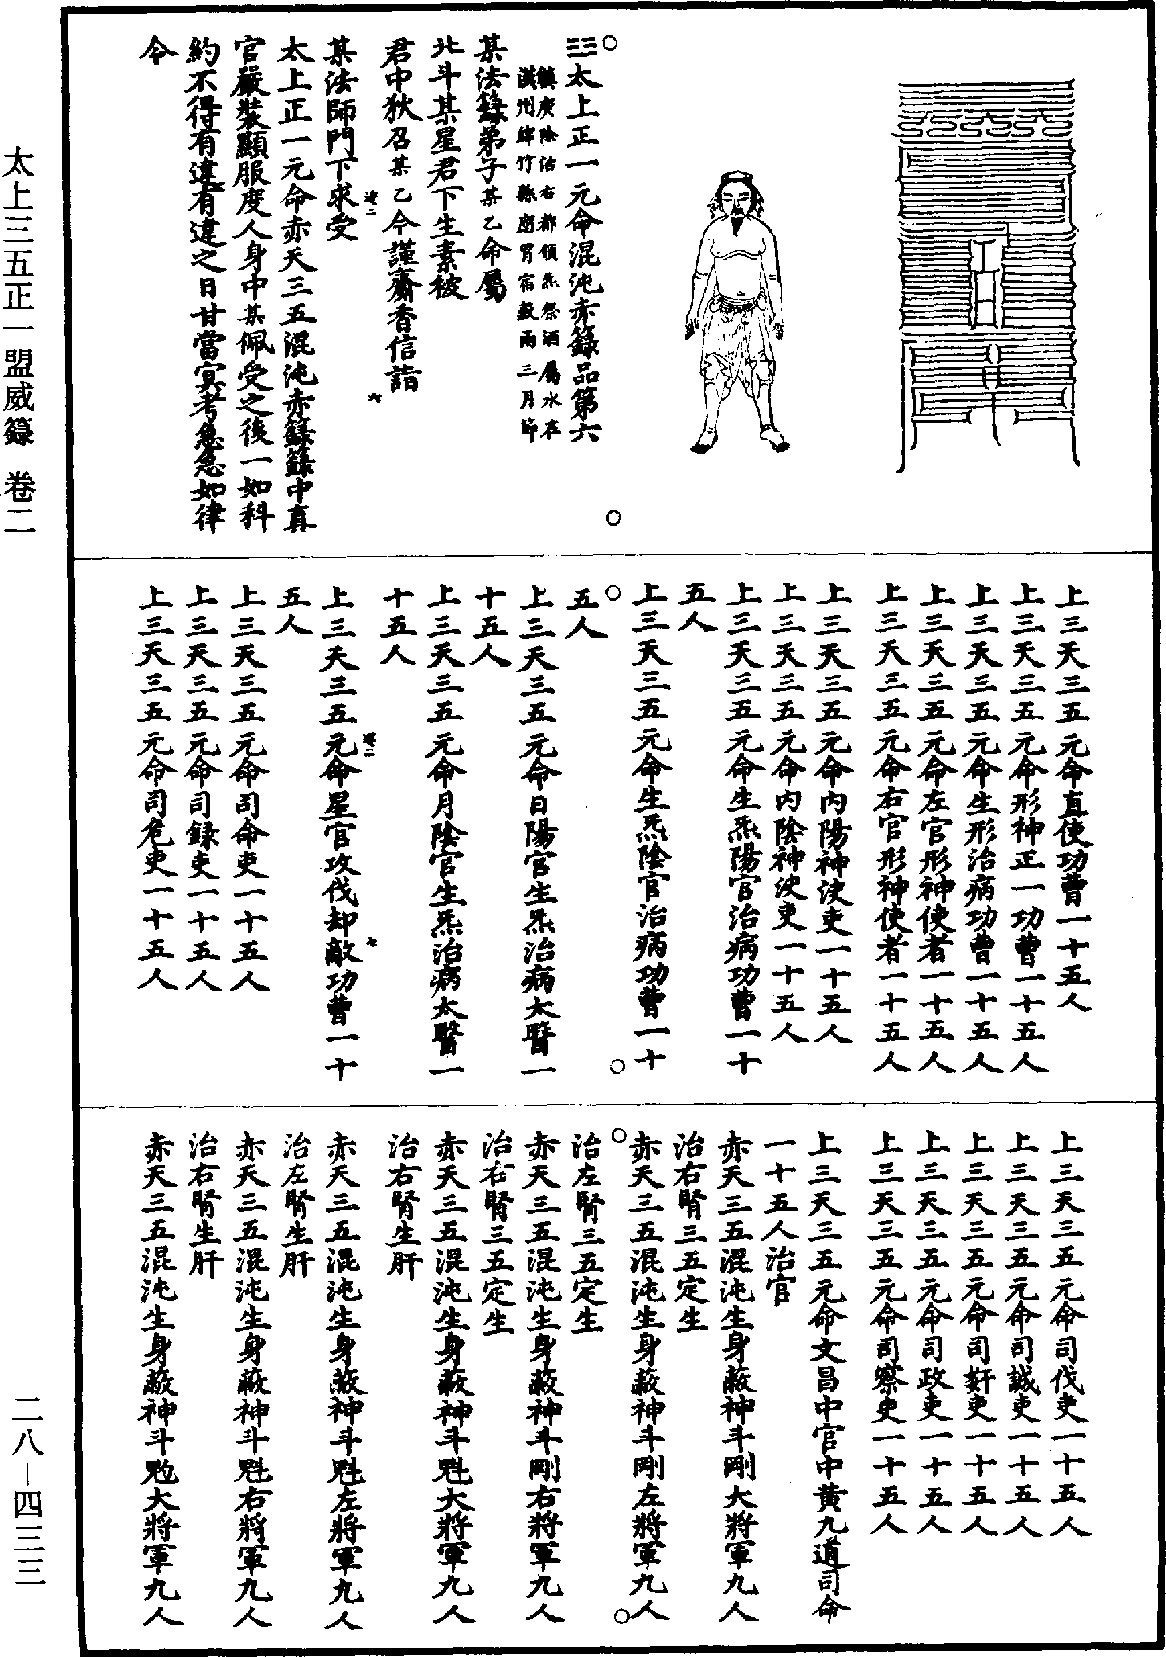 三太上正一元命混沌赤籙品第六
鎮庚除治右都領炁祭酒屬水在
漢州綿竹縣廟胃宿穀雨三月節
某法籙弟子某乙命屬
北斗某星君下生素被
君中狄召某乙今謹齎香信詣
某法師門下求受
太上正一元命赤天三五混沌赤籙籙中真
官嚴裝顯服度人身中某佩受之後一如科
約不得有違有違之日甘當冥考急急如律
令
上三天三五元命直使功曹一十五人
上三天三五元命形神正一功曹一十五人
上三天三五元命生形治病功曹一十五人
上三天三五元命左官形神使者一十五人
上三天三五元命右官形神使者一十五人
上三天三五元命內陽神決吏一十五人
上三天三五元命內陰神決吏一十五人
上三天三五元命生炁陽官治病功曹一十
五人
上三天三五元命生炁陰官治病功曹一十
五人
上三天三五元命日陽官生炁治病太醫一
十五人
上三天三五元命月陰官生炁治病太醫一
十五人
上三天三五元命星官攻伐却敵功曹一十
五人
上三天三五元命司命吏一十五人
上三天三五元命司錄吏一十五人
上三天三五元命司危吏一十五人
上三天三五元命司伐吏一十五人
上三天三五元命司誠吏一十五人
上三天三五元命司奸吏一十五人
上三天三五元命司政吏一十五人
上三天三五元命司察吏一十五人
上三天三五元命文昌中官中黄九道司命
一十五人治官
赤天三五混沌生身蔽神斗剛大將軍九人
治右腎三五定生
赤天三五混沌生身蔽神斗剛左將軍九人
治左腎三五定生
赤天三五混沌生身蔽神斗剛右將軍九人
治右腎三五定生
赤天三五混沌生身蔽神斗魁大將軍九人
治右腎生肝
赤天三五混沌生身蔽神斗魁左將軍九人
治左腎生肝
赤天三五混沌生身蔽神斗魁右將軍九人
治右腎生肝
赤天三五混沌生身蔽神斗魁大將軍九人
太上三五正一盟威籙 卷二
二八－四三三